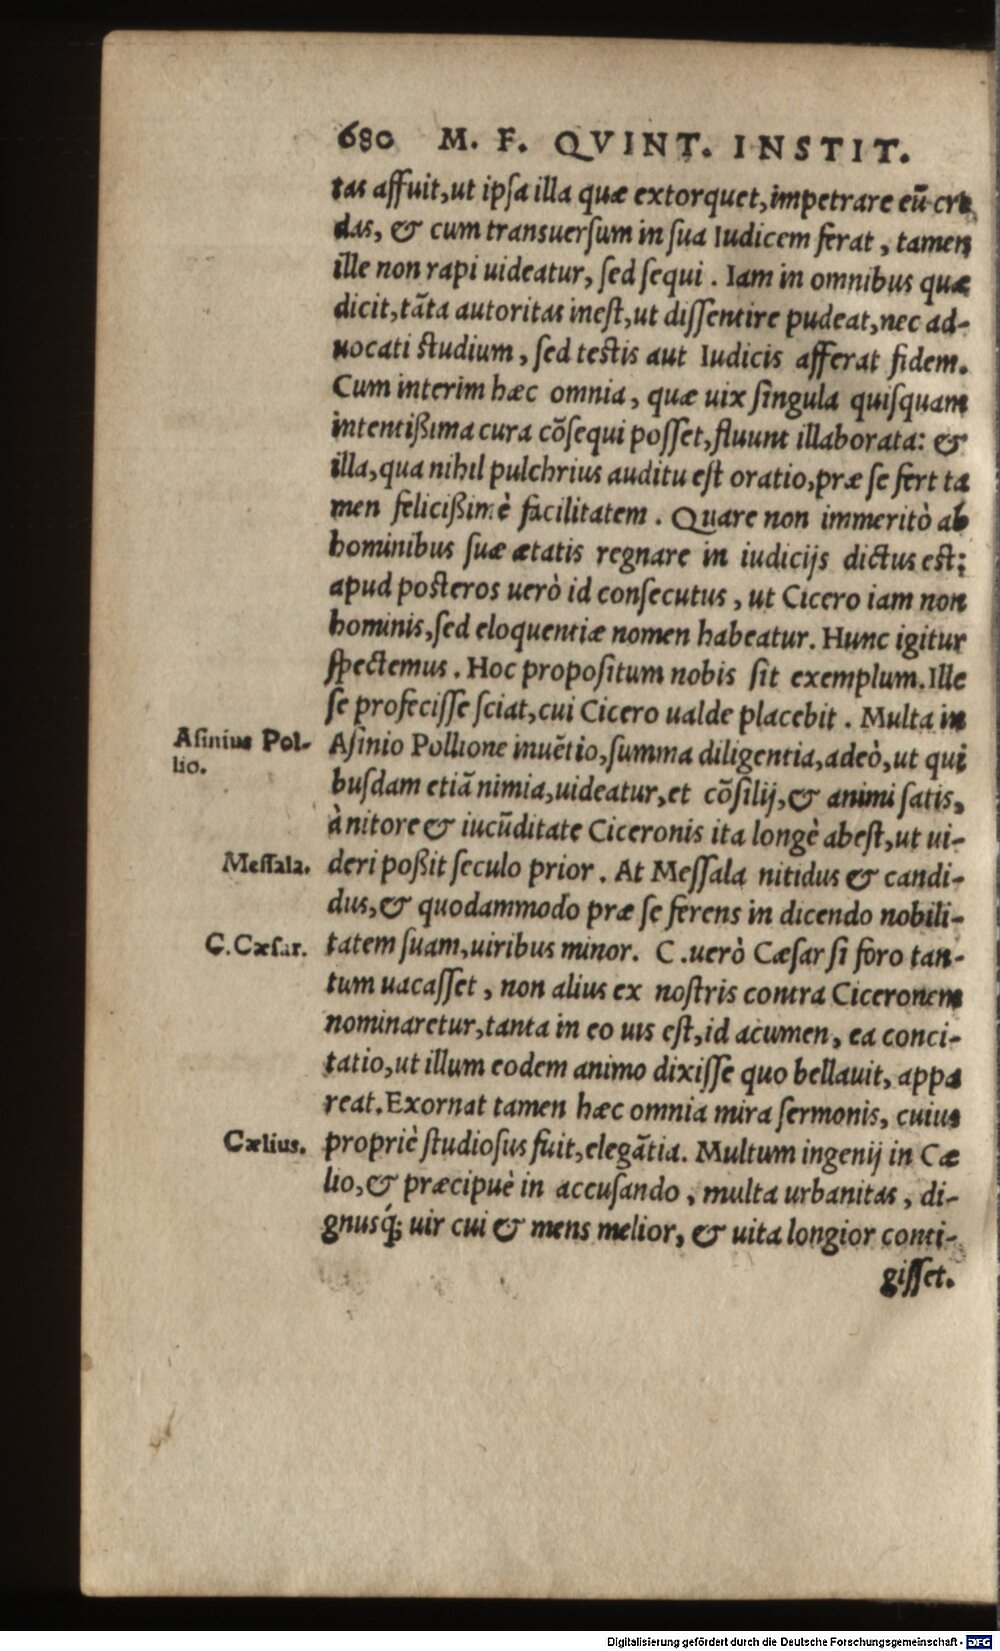 680 M. F. QVINT. INSTIT.
tas affuit, ut ipsa illa quæ extorquet, impetrare eū cre
das, & cum transuersum in sua Iudicem ferat, tamen
ille non rapi uideatur, sed sequi. Iam in omnibus quæ
dicit, tãta autoritas inest, ut dissentire pudeat, nec ad-
uocati studium, sed testis aut Iudicis afferat fidem.
Cum interim hæc omnia, quæ uix singula quisquam
intentißima cura cõsequi posset, fluunt illaborata: &
illa, qua nihil pulchrius auditu est oratio, præ se fert ta
men felicißimè facilitatem. Quare non immeritò ab
hominibus suæ ætatis regnare in iudicijs dictus est;
apud posteros uerò id consecutus, ut Cicero iam non
hominis, sed eloquentiæ nomen habeatur. Hunc igitur
spectemus. Hoc propositum nobis sit exemplum. Ille
se profecisse sciat, cui Cicero ualde placebit. Multa in
Asinius Pol-
lio.
Asinio Pollione inuẽtio, summa diligentia, adeò, ut qui
busdam etiã nimia, uideatur, et cõsilij, & animi satis,
à nitore & iucũditate Ciceronis ita longè abest, ut ui-
Messala. deri poßit seculo prior. At Messala nitidus & candi-
dus, & quodammodo præ se ferens in dicendo nobili-
C. Cæsar. tatem suam, uiribus minor. C. uerò Cæsar si foro tan-
tum uacasset, non alius ex nostris contra Ciceronem
nominaretur, tanta in eo uis est, id acumen, ea conci-
tatio, ut illum eodem animo dixisse quo bellauit, appa
reat. Exornat tamen hæc omnia mira sermonis, cuius
Cælius. propriè studiosus fuit, elegãtia. Multum ingenij in Cæ
lio, & præcipuè in accusando, multa urbanitas, di-
gnusq́; uir cui & mens melior, & uita longior conti-
gisset.
Digitalisierung gefördert durch die Deutsche Forschungsgemeinschaft - DFG